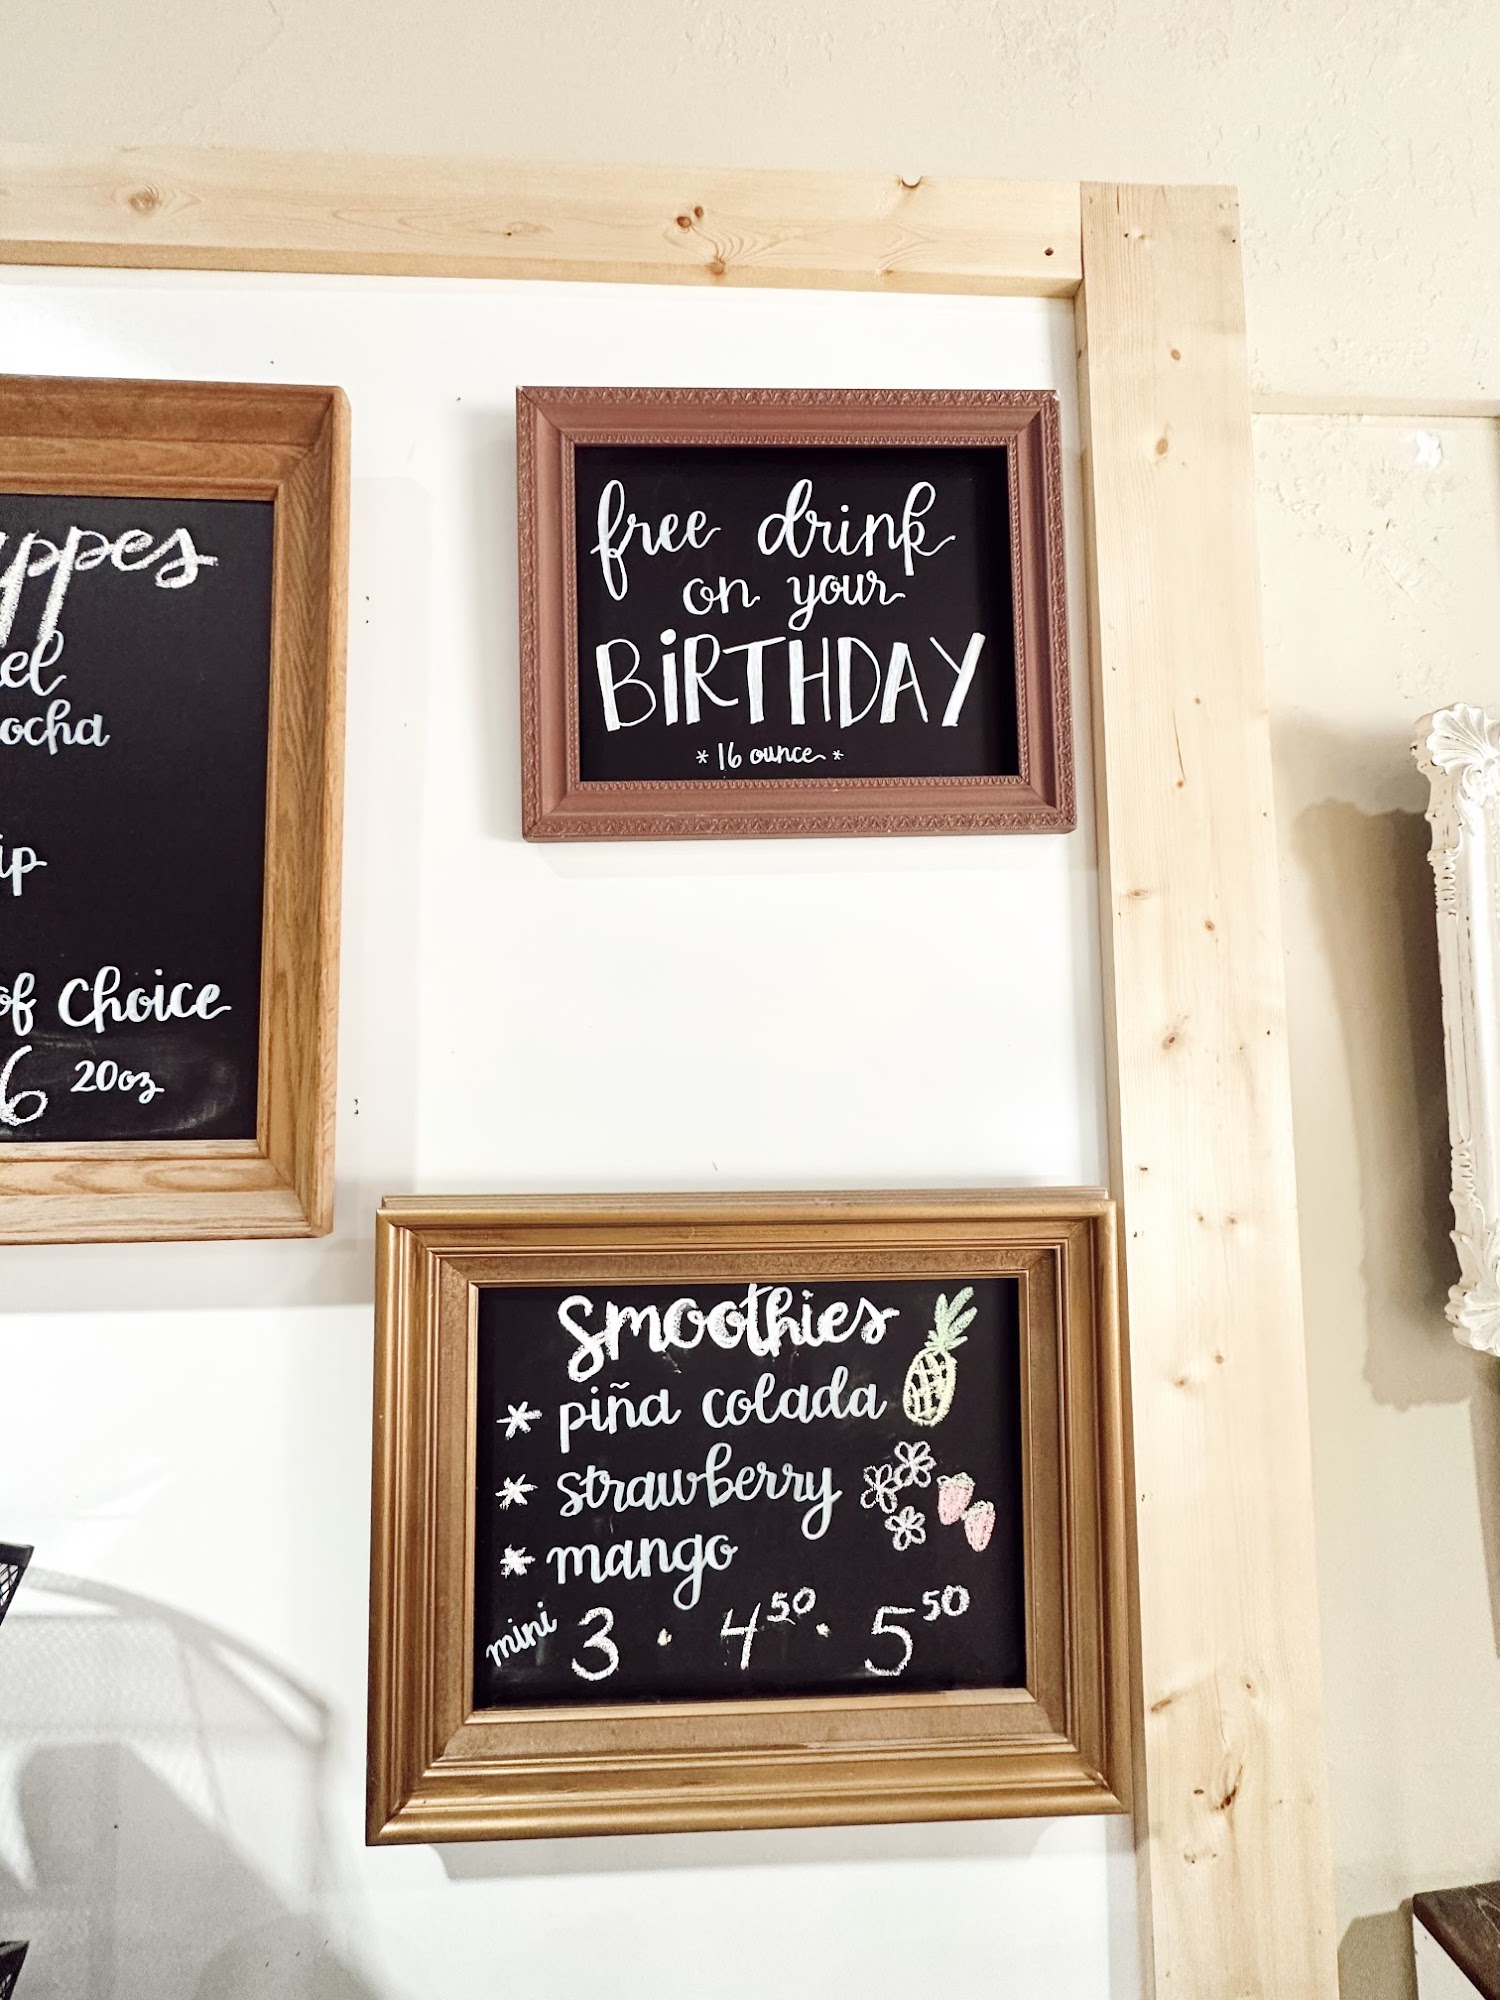 of Choice
6 20oz
free drink
on your
BiRTHDAY
* 16 ounce *
Smoothies
* piña colada
* strawberry
* mango
mini 3 • 4 50 • 5 50